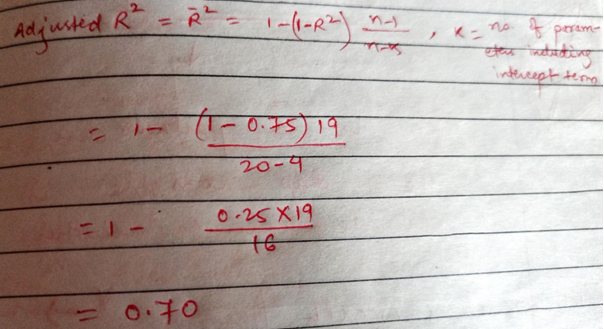 Adjusted R² = R̄² = 1-(1-R²) n-1/n-k , k = no of param-
eters including
intercept term
= 1- (1-0.75)19/20-4
= 1- 0.25×19/16
= 0.70